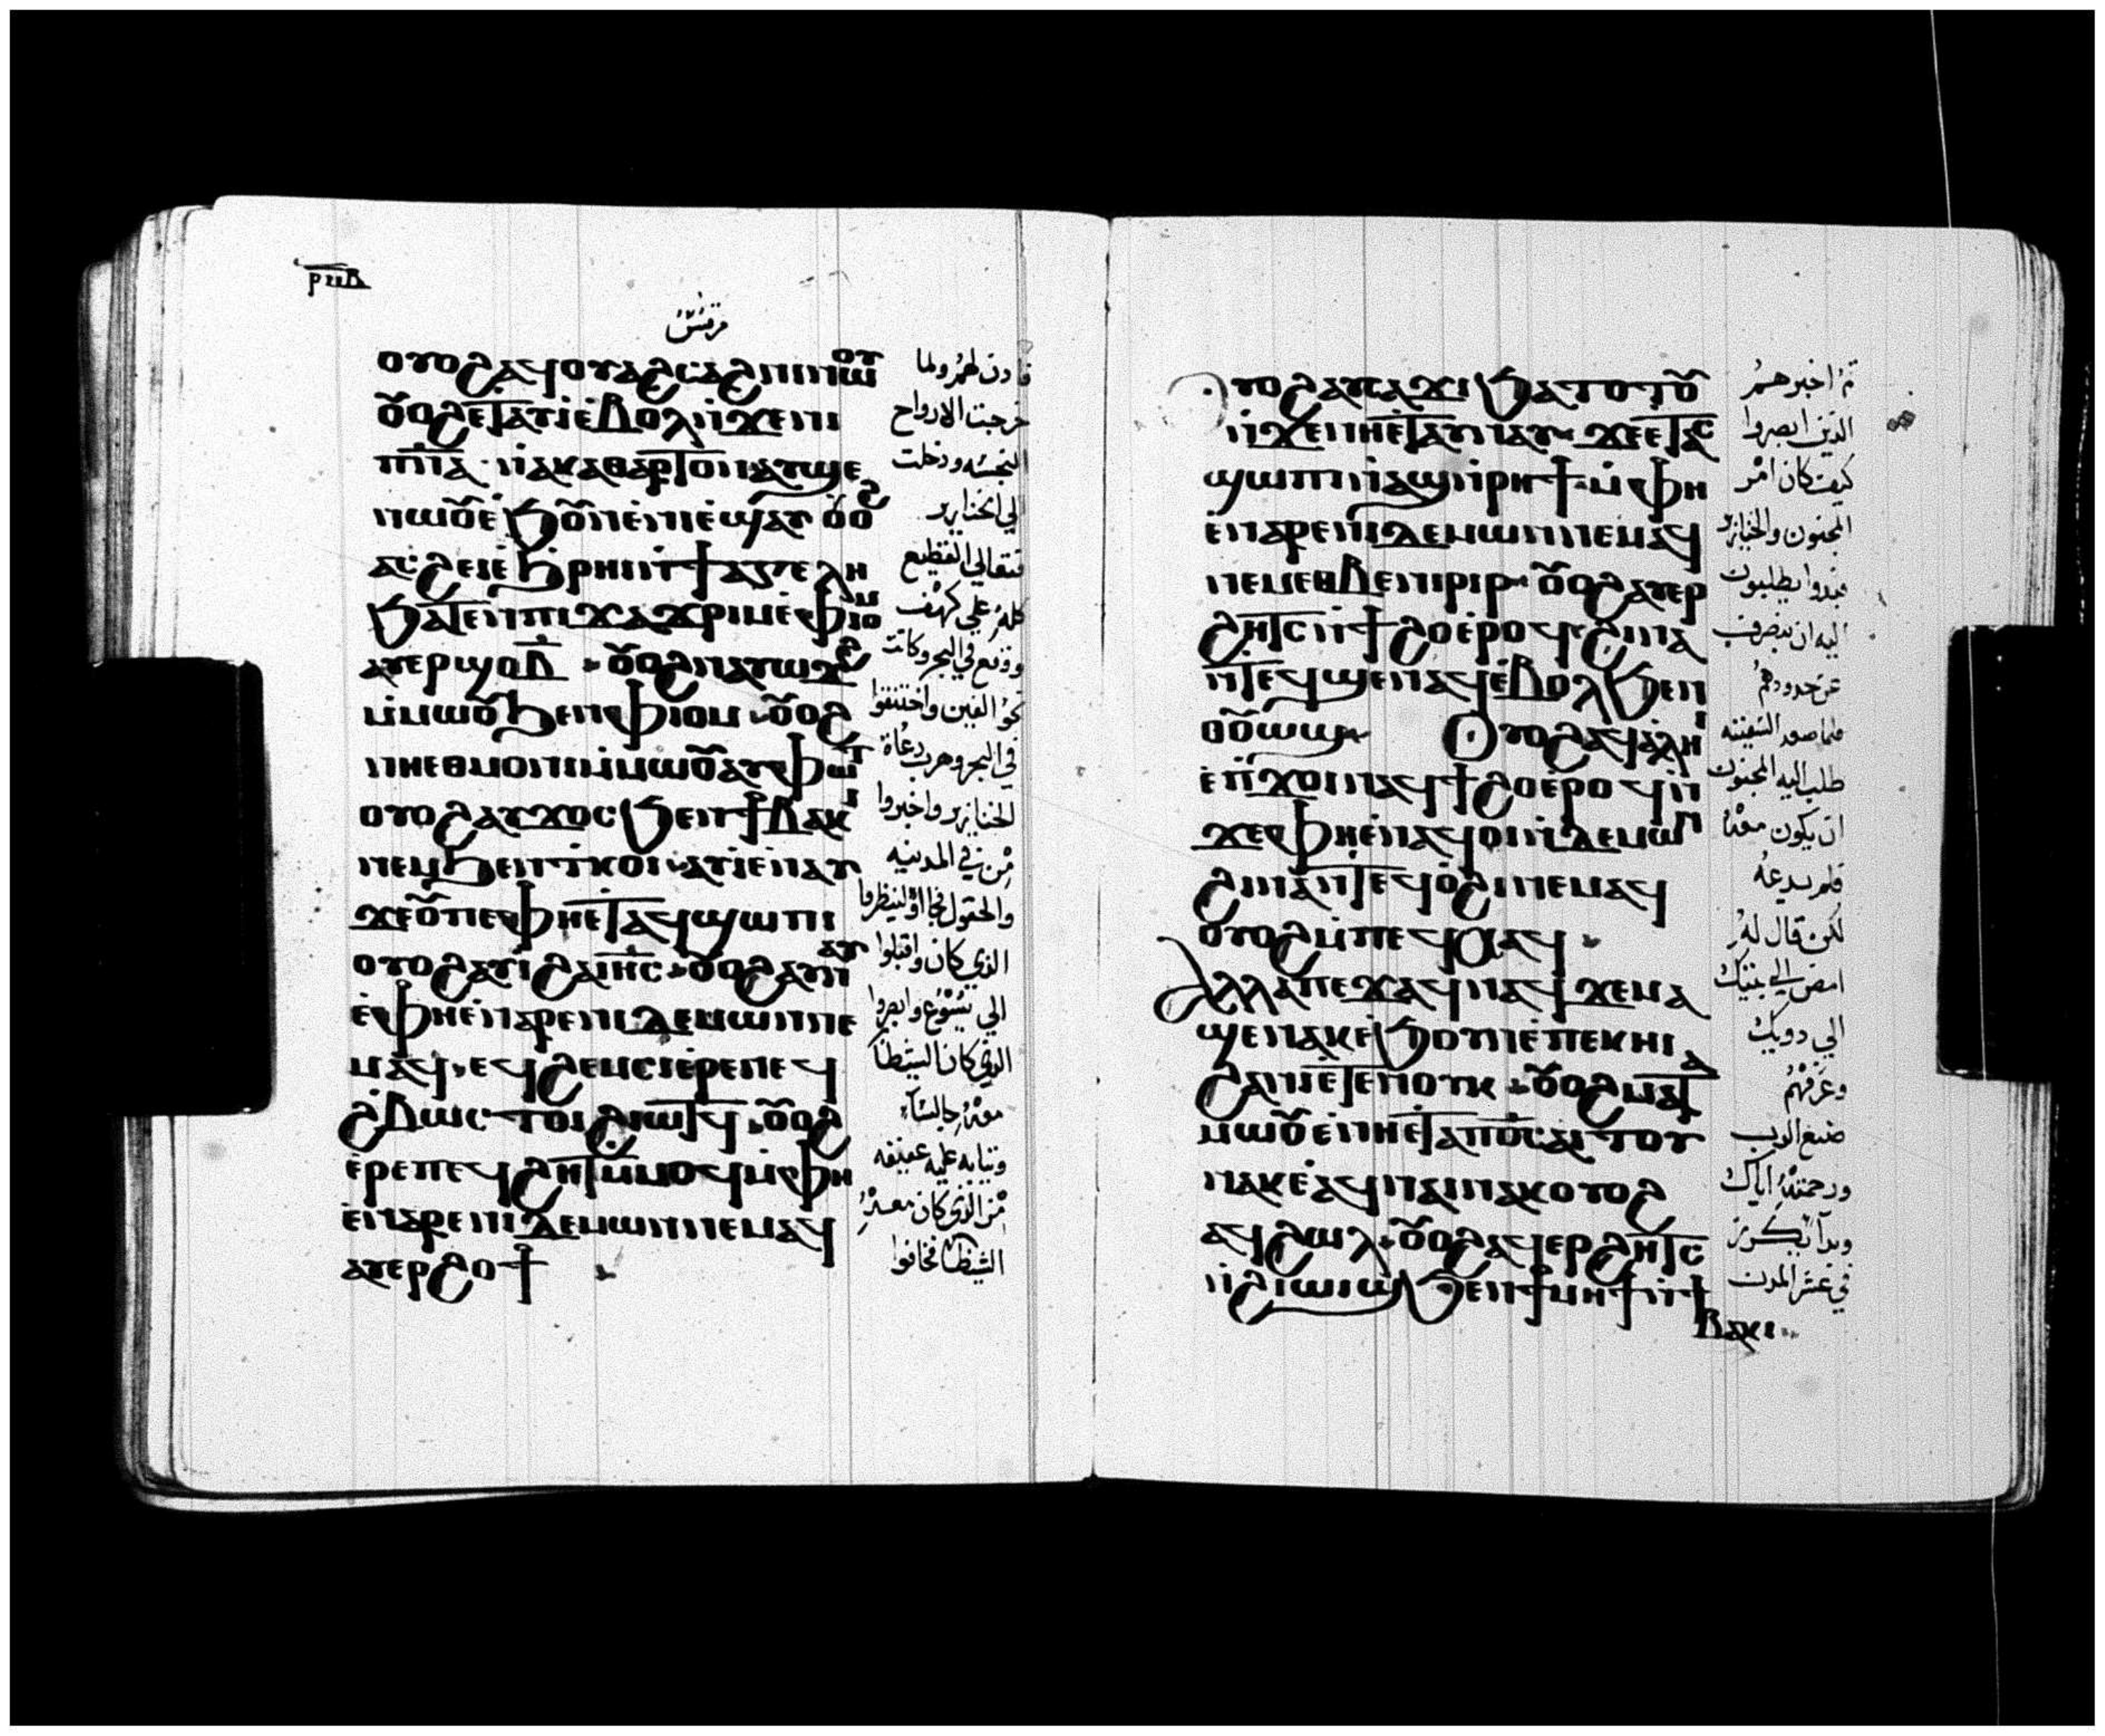 ⲣⲛⲃ
مرقس
ⲟⲩⲟϩ ⲁϥⲟⲩⲁϩⲥⲁϩⲛⲓ ⲛⲱⲟⲩ
ⲟⲩⲟϩ ⲉⲧⲁⲩⲓ̀ ⲉ̀ⲃⲟⲗ ⲛ̀ϫⲉⲛⲓ
ⲡⲛ̅ⲁ̅ ⲛ̀ⲁⲕⲁⲑⲁⲣⲧⲟⲛ ⲁⲩϣⲉ
ⲛⲱⲟⲩ ⲉ̀ϧⲟⲩⲛ ⲉ̀ⲛⲓⲉ̀ϣⲁⲩ ⲟⲩⲟϩ
ⲁⲥϩⲉⲓ ⲉ̀ϧⲣⲏⲓ ⲛ̀ϯⲁⲅⲉⲗⲏ
ϧⲁⲧⲉⲛ ⲡⲓϫⲁϫⲣⲓⲙ ⲉ̀ⲫⲓⲟⲙ
ⲁⲩⲉⲣ ϣⲟ ⲃ̅ ⲟⲩⲟϩ ⲛⲁⲩⲱϫϩ
ⲙ̀ⲙⲱⲟⲩ ϧⲉⲛ ⲫⲓⲟⲙ ⲟⲩⲟϩ
ⲛⲏⲉⲑⲙⲟⲛⲓ ⲙ̀ⲙⲱⲟⲩ ⲁⲩⲫⲱⲧ
ⲟⲩⲟϩ ⲁⲩϫⲟⲥ ϧⲉⲛ ϯⲃⲁⲕⲓ
ⲛⲉⲙ ϧⲉⲛ ⲧⲕⲟⲓ ⲁⲩⲓ̀ ⲉ̀ⲛⲁⲩ
ϫⲉ ⲟⲩ ⲡⲉ ⲫⲏⲉⲧⲁϥϣⲱⲡⲓ
ⲟⲩⲟϩ ⲁⲩⲓ̀ ϩⲁ ⲓⲏ̅ⲥ̅ ⲟⲩⲟϩ ⲁⲩⲛⲁⲩ
ⲉ̀ⲫⲏⲉ̀ⲛⲁⲣⲉ ⲛⲓⲇⲉⲙⲱⲛ ⲛⲉ
ⲙⲁϥ ⲉϥϩⲉⲙⲥⲓ ⲉ̀ⲣⲉ ⲛⲉϥ
ϩ̀ⲃⲱⲥ ⲧⲟⲓ ϩⲓⲱⲧϥ ⲟⲩⲟϩ
ⲉ̀ⲣⲉ ⲡⲉϥϩⲏⲧ ⲙ̀ⲙⲟϥ ⲙ̀ⲫⲏ
ⲉ̀ⲛⲁⲣⲉ ⲡⲓⲇⲉⲙⲱⲛ ⲛⲉⲙⲁϥ
ⲁⲩⲉⲣϩⲟϯ
فادن لهم ولما
خرجت الارواح
النجسه ودخلت
الي الخنازير
فتعالي القطيع
كله علي كهف
ووقع في البحر وكانت
نحو الفين واختنقوا
في البحر وهرب رعاة
الخنازير واخبروا
من في المدينه
والحقول فجااوا لينظروا
الذي كان واقبلوا
الي يسوع وابصروا
الذي كان الشيطان
معه جالسا
وثيابه عليه عفيفه
من الذي كان معه
الشيطان فخافوا
ⲟⲩⲟϩ ⲁⲩⲥⲁϫⲓ ϧⲁⲧⲟⲧⲟⲩ
ⲛ̀ϫⲉⲛⲏⲉ̀ⲧⲁⲩⲛⲁⲩ ϫⲉ ⲉⲧⲁⲥ
ϣⲱⲡⲓ ⲛ̀ⲁϣ ⲛ̀ⲣⲏϯ ⲙ̀ⲫⲏ
ⲉ̀ⲛⲁⲣⲉ ⲛⲓⲇⲉⲙⲱⲛ ⲛⲉⲙⲁϥ
ⲛⲉⲙ ⲉⲑⲃⲉ ⲛⲓⲣⲓⲣ ⲟⲩⲟϩ ⲁⲩⲉⲣ
ϩⲏⲧⲥ ⲛ̀ϯϩⲟ ⲉ̀ⲣⲟϥ ϩⲓⲛⲁ
ⲛ̀ⲧⲉϥϣⲉⲛⲁϥ ⲉ̀ⲃⲟⲗ ϧⲉⲛ
ⲟⲩⲟⲩⲱϣ ⲟⲩⲟϩ ⲁϥⲁ̀ⲗⲏⲓ
ⲉ̀ⲡϫⲟⲓ ⲛⲁϥϯϩⲟ ⲉ̀ⲣⲟϥ ⲛ̀
ϫⲉ ⲫⲏⲉ̀ⲛⲁϥⲟⲓ ⲛ̀ⲇⲉⲙⲱⲛ
ϩⲓⲛⲁ ⲛ̀ⲧⲉϥⲟ̀ϩⲓ ⲛⲉⲙⲁϥ
ⲟⲩⲟϩ ⲙ̀ⲡⲉϥⲭⲁϥ
ⲁⲗⲗⲁ ⲡⲉϫⲁϥ ⲛⲁϥ ϫⲉ ⲙⲁ
ϣⲉⲛⲁⲕ ⲉ̀ϧⲟⲩⲛ ⲉ̀ⲡⲉⲕⲏⲓ
ϩⲁ ⲛⲏⲉ̀ⲧⲉⲛⲟⲩⲕ ⲟⲩⲟϩ ⲙⲁⲧⲁ
ⲙⲱⲟⲩ ⲉ̀ⲛⲏⲉ̀ⲧⲁ ⲡⲟ̅ⲥ̅ ⲁⲓⲧⲟⲩ
ⲛⲁⲕ ⲉ̀ⲁϥⲛⲁⲓ ⲛⲁⲕ ⲟⲩⲟϩ
ⲁϥϩⲱⲗ ⲟⲩⲟϩ ⲁϥⲉⲣϩⲏⲧⲥ
ⲛ̀ϩⲓⲱⲓϣ ϧⲉⲛ ϯⲙⲏϯ ⲛ̀ϯ
ⲃⲁⲕⲓ
ثم اخبرهم
الذين ابصروا
كيف كان امر
المجنون والخنازير
فبدوا يطلبون
اليه ان ينصرف
عن حدودهم
فلما صعد السفينه
طلب اليه المجنون
ان يكون معه
فلم يدعه
لكن قال له
امض الي بيتك
الي دويك
وعرفهم
صنع الرب
ورحمته اياك
وبدا يكرز
في عشر المدن